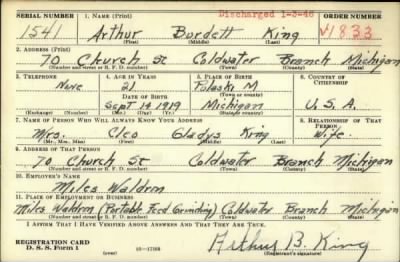 Discharged 1-3-46
SERIAL NUMBER 1. NAME (Print) ORDER NUMBER
1541 Arthur Burdett King V1833
(First) (Middle) (Last)
2. ADDRESS (Print)
70 Church St Coldwater Branch Michigan
(Number and street or R. F. D. number) (Town) (County) (State)
3. TELEPHONE 4. AGE IN YEARS 5. PLACE OF BIRTH 6. COUNTRY OF CITIZENSHIP
None 21 Pulaski M
DATE OF BIRTH (Town or county)
Sept 14 1919 Michigan U.S.A.
(Exchange) (Number) (Mo.) (Day) (Yr.) (State or country)
7. NAME OF PERSON WHO WILL ALWAYS KNOW YOUR ADDRESS 8. RELATIONSHIP OF THAT PERSON
Mrs. Cleo Gladys King Wife
(Mr., Mrs., Miss) (First) (Middle) (Last)
9. ADDRESS OF THAT PERSON
70 Church St Coldwater Branch Michigan
(Number and street or R. F. D. number) (Town) (County) (State)
10. EMPLOYER'S NAME
Miles Waldron
11. PLACE OF EMPLOYMENT OR BUSINESS
Miles Waldron (Portable Feed Grinding) Coldwater Branch Michigan
(Number and street or R. F. D. number) (Town) (County) (State)
I AFFIRM THAT I HAVE VERIFIED ABOVE ANSWERS AND THAT THEY ARE TRUE.
REGISTRATION CARD
D. S. S. Form 1 (over) 16-17105 Arthur B. King
(Registrant's signature)